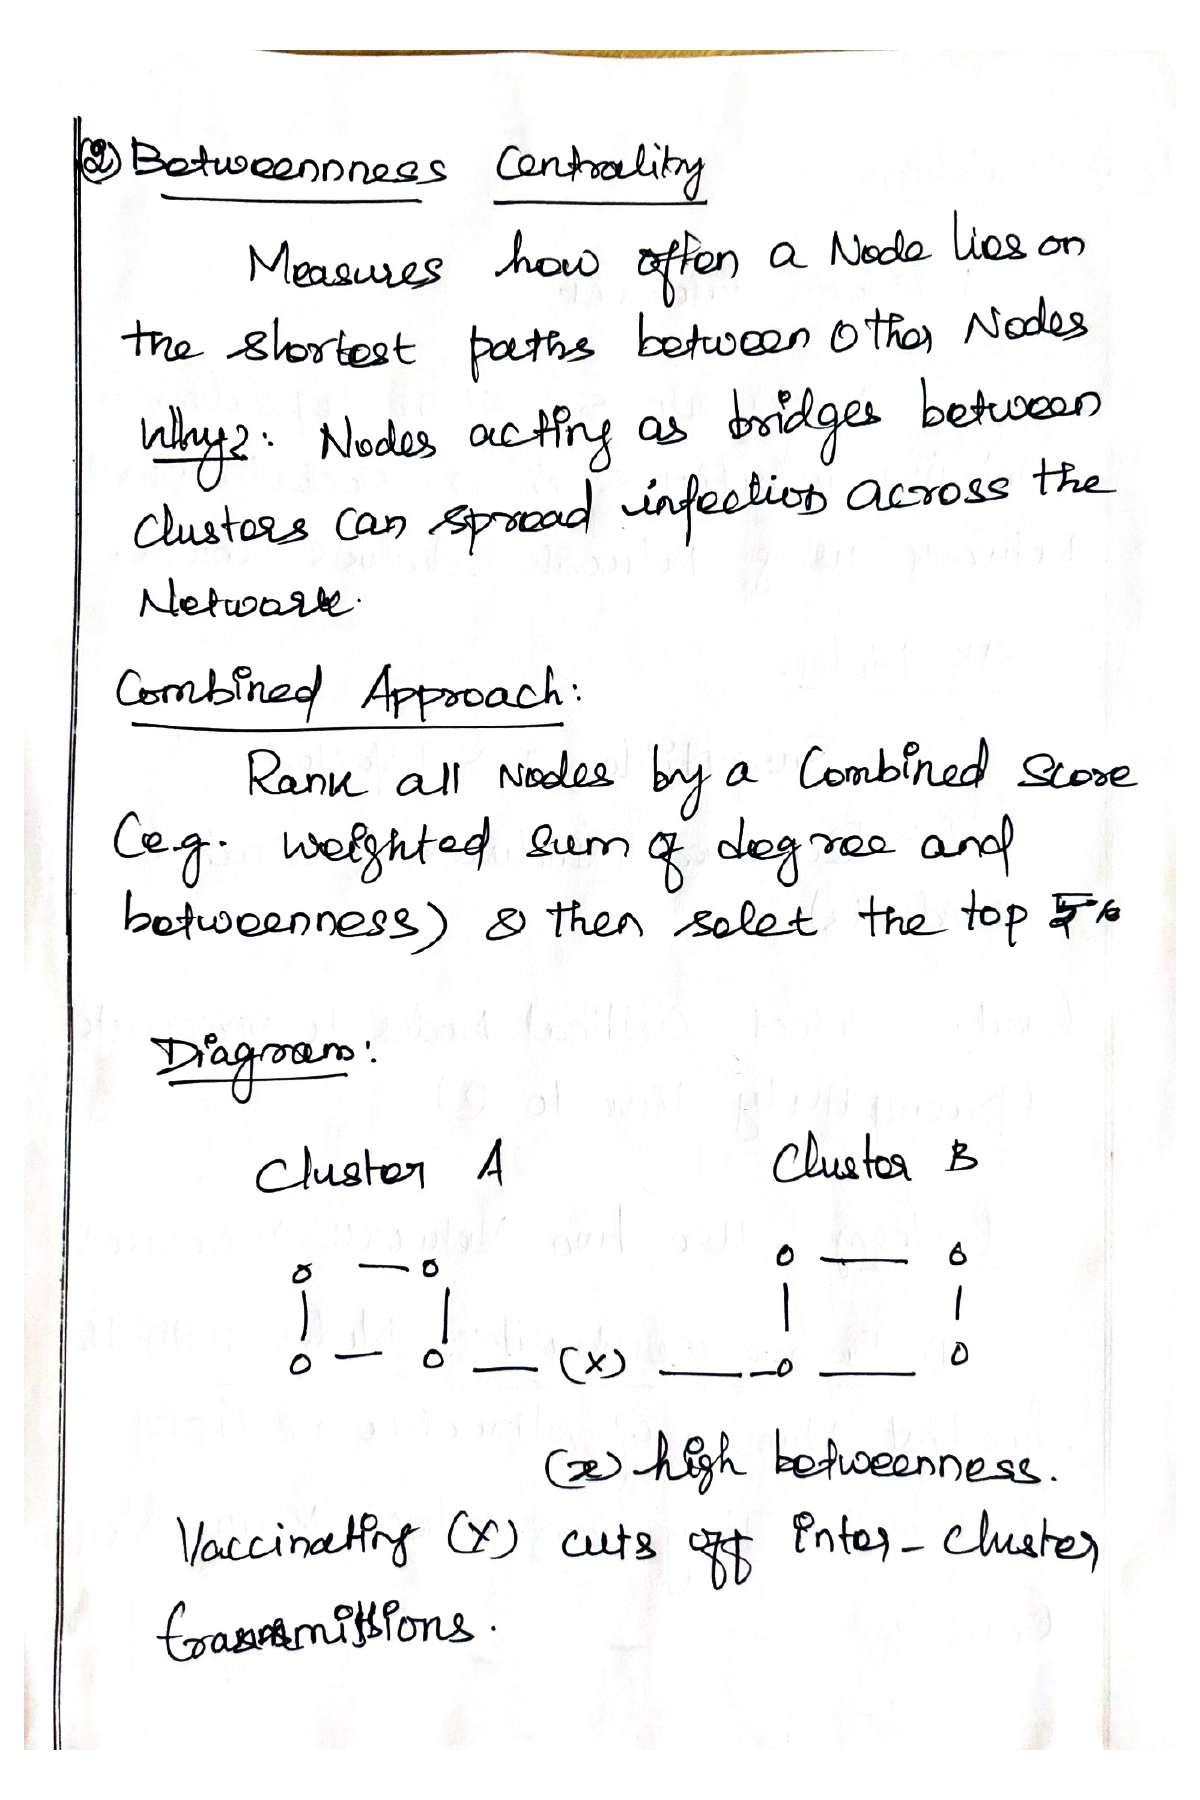 (2) Betweennness Centrality
Measures how often a Node lies on
the shortest paths between other Nodes
Why?: Nodes acting as bridges between
clusters can spread infection across the
Network.
Combined Approach:
Rank all Nodes by a Combined Score
(e.g. weighted sum of degree and
betweenness) & then selet the top 5%
Diagram:
Cluster A Cluster B
(X)
(x) high betweenness.
Vaccinating (X) cuts off inter-cluster
transmissions.